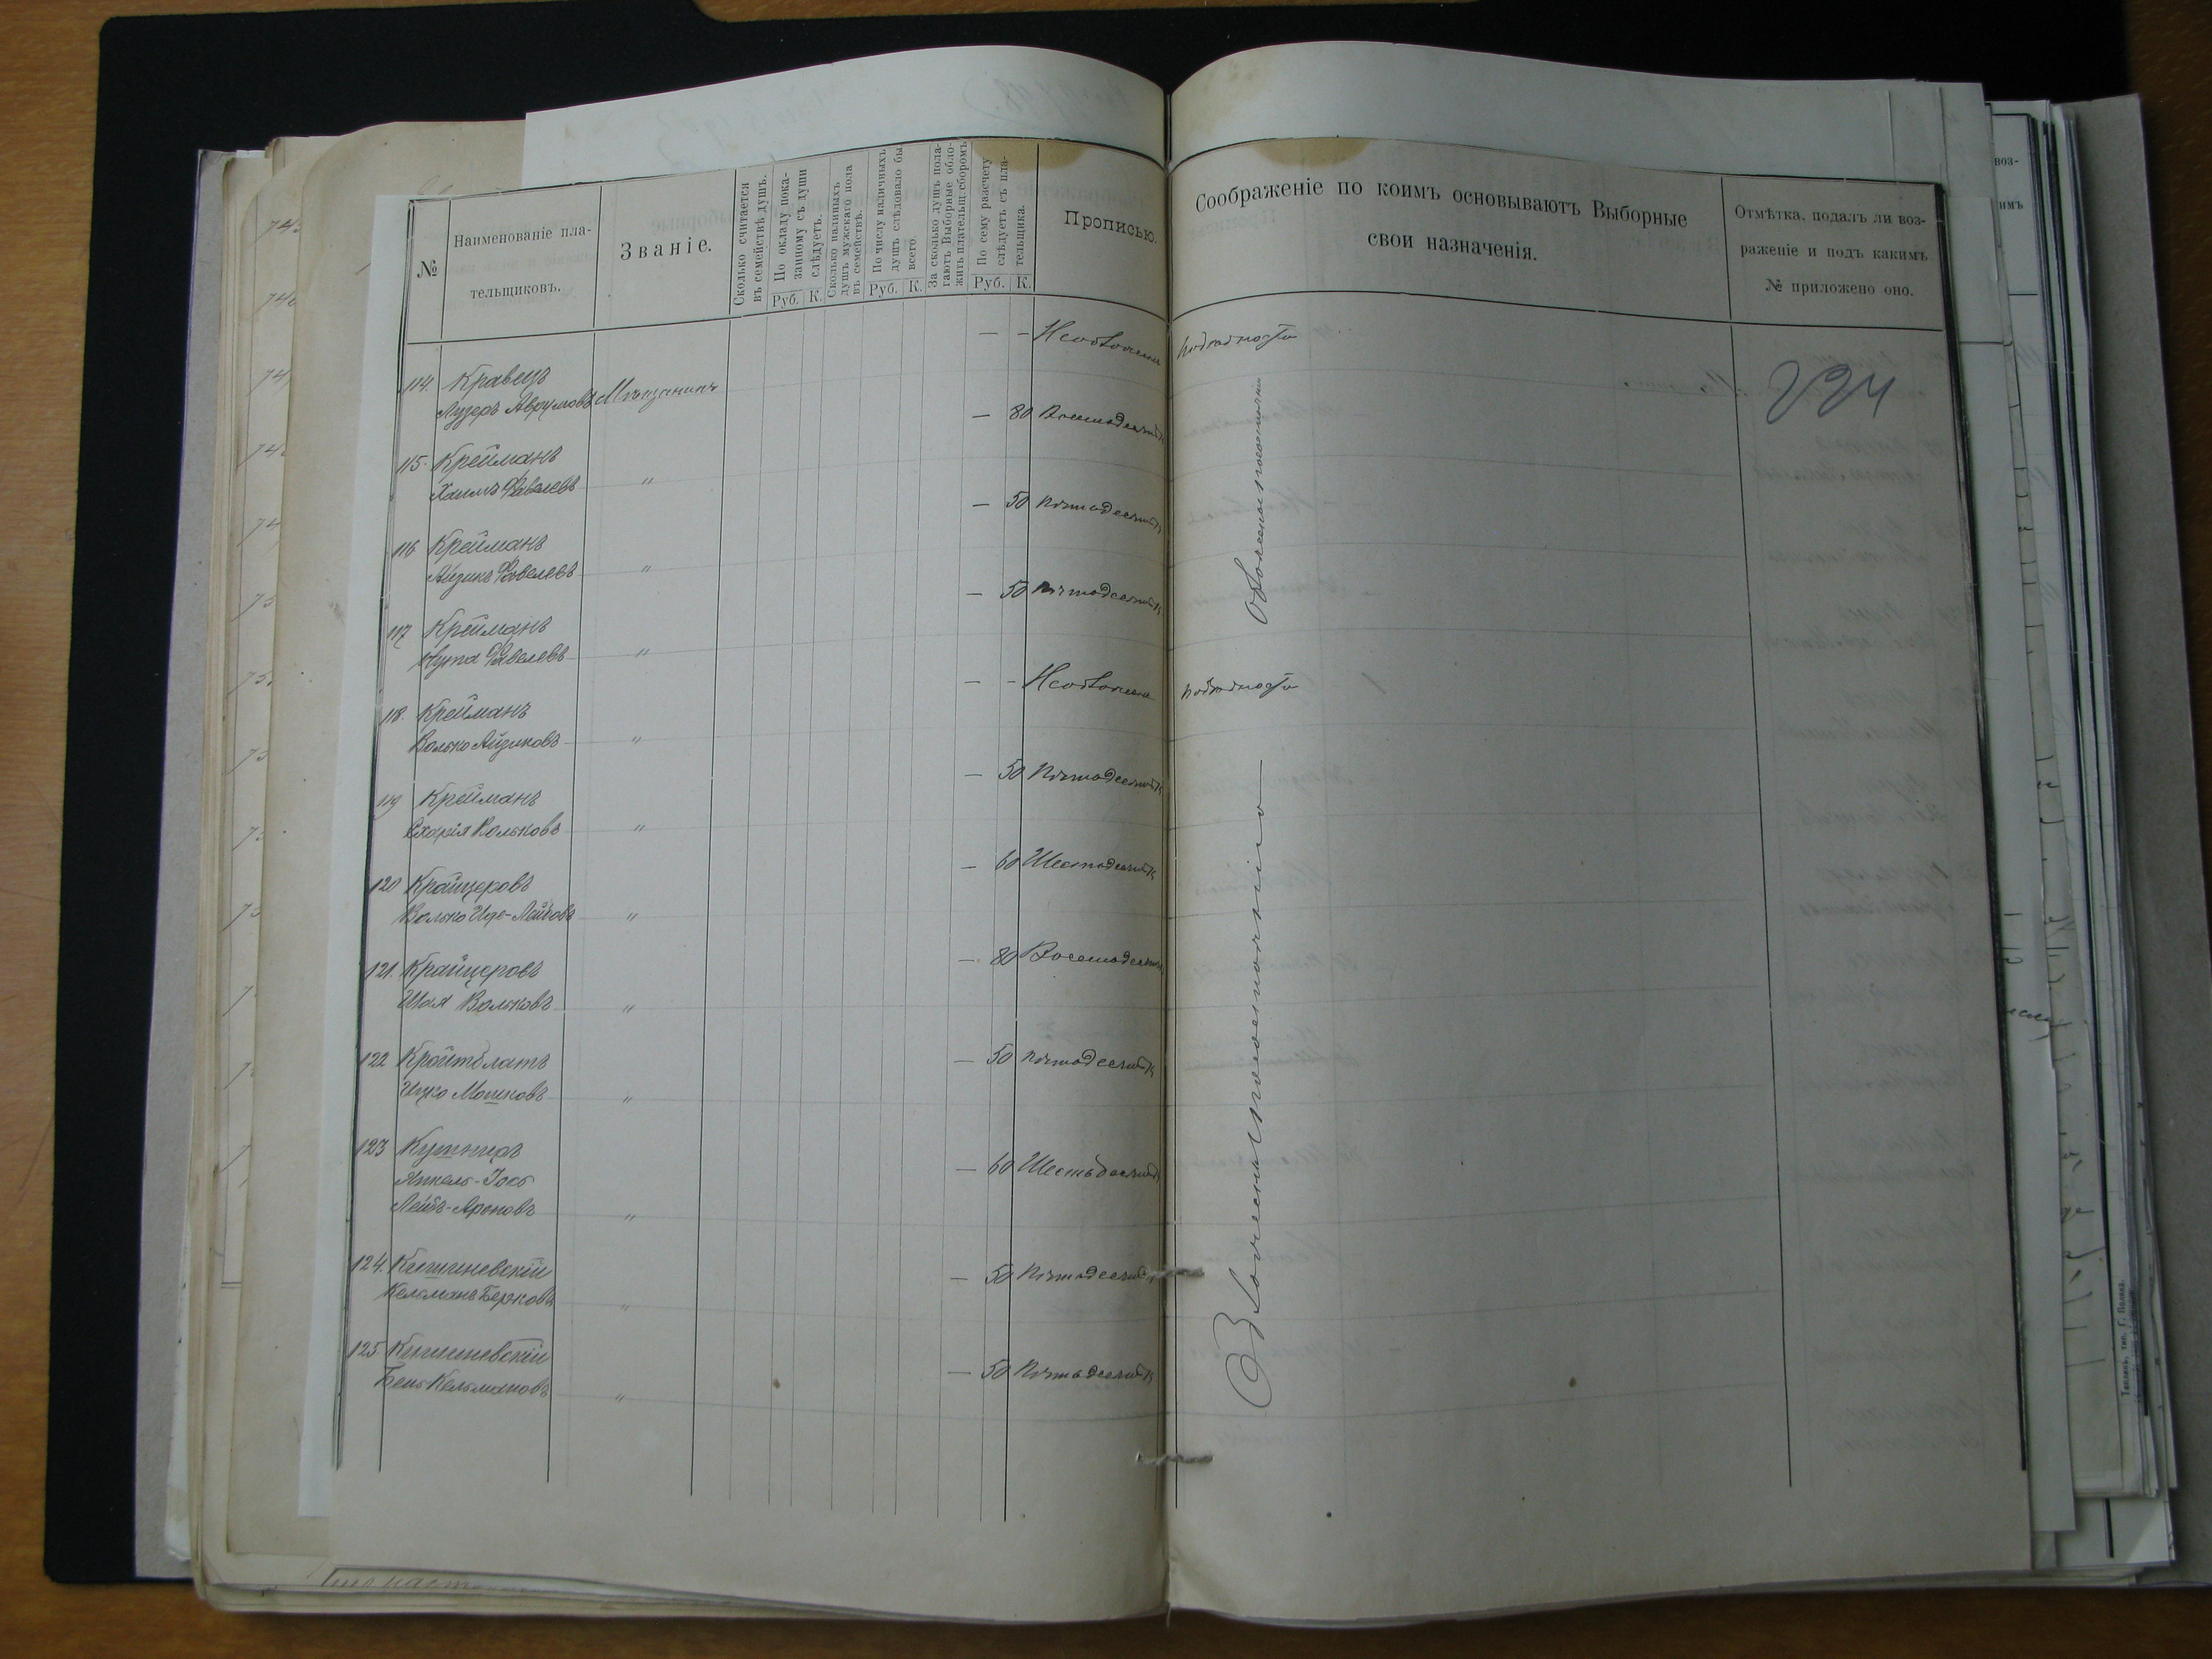 №
Наименованіе пла-
тельщиковъ.
Званіе.
Сколько считается
въ семействѣ душъ.
По окладу пока-
занному съ души
слѣдуетъ.
Руб. К.
Сколько наличныхъ
душъ мужскаго пола
въ семействѣ.
По числу наличныхъ
душъ слѣдовало бы
всего.
Руб. К.
За сколько душъ пола-
гаютъ Выборные обло-
жить плательщ. сборомъ
По сему разсчету
слѣдуетъ съ пла-
тельщика.
Руб. К.
Прописью.
Соображеніе по коимъ основываютъ Выборные
свои назначенія.
Отмѣтка, подалъ ли воз-
раженіе и подъ какимъ
№ приложено оно.
224
— — Необложенъ по бѣдности
114. Кравецъ
Лузеръ Аврумовъ Мѣщанинъ
— 80 Восемьдесятъ к
115. Крейманъ
Хаимъ Фавелевъ "
— 50 Пятьдесятъ к
116 Крейманъ
Айзикъ Фавелевъ "
— 50 Пятьдесятъ к
117 Крейманъ
Нута Фавелевъ "
— — Необложенъ по бѣдности
118. Крейманъ
Волько Айзиковъ "
— 50 Пятьдесятъ к
119 Крейманъ
Схарія Вольковъ "
— 60 Шестьдесятъ к
120 Крайцеровъ
Волько Иде-Лейбовъ "
— 80 Восемьдесятъ
121. Крайцеровъ
Шая Вольковъ "
— 50 Пятьдесятъ к
122 Крайтблатъ
Ицко Мошковъ "
123 Кушниръ
— 60 Шестьдесятъ к
Янкель-Іось
Лейбъ-Ароновъ "
124. Кишиневскій
— 50 Пятьдесятъ к
Кельманъ Берковъ "
125 Кишиневскій
— 50 Пятьдесятъ к
Бень Кельмановъ "
Обложены по состоянію
Обложены по состоянію